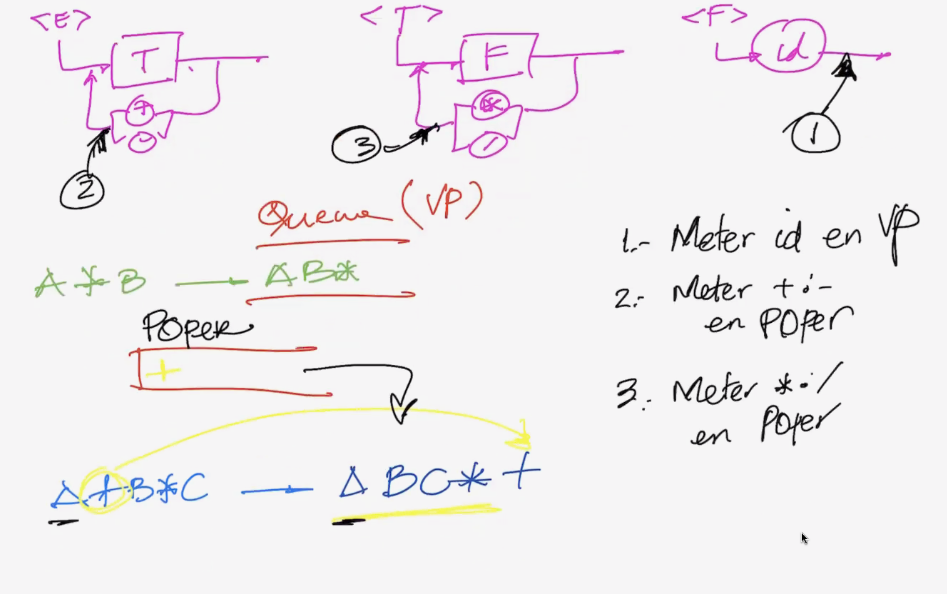 <E>
<T>
<F>
T
F
id
+
-
*
/
2
3
1
(VP)
A * B → A B *
POper
+
A + B * C → A B C * +
1.- Meter id en VP
2.- Meter + ó -
en POper
3.- Meter * ó /
en POper